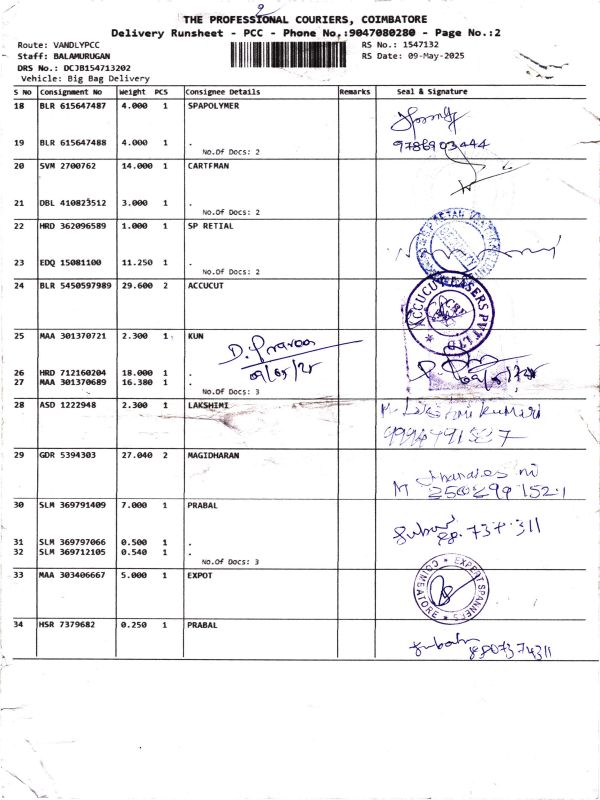 2
THE PROFESSIONAL COURIERS, COIMBATORE
Delivery Runsheet - PCC - Phone No.:9047080280 - Page No.:2
Route: VANDLYPCC
RS No.: 1547132
Staff: BALAMURUGAN
RS Date: 09-May-2025
DRS No.: DCJB154713202
Vehicle: Big Bag Delivery
S No Consignment No Weight PCS Consignee Details Remarks Seal & Signature
18 BLR 615647487 4.000 1 SPAPOLYMER
19 BLR 615647488 4.000 1 .
9786903444
No.Of Docs: 2
20 SVM 2700762 14.000 1 CARTFMAN
21 DBL 410823512 3.000 1 .
No.Of Docs: 2
22 HRD 362096589 1.000 1 SP RETIAL
23 EDQ 15081100 11.250 1 .
No.Of Docs: 2
24 BLR 5450597989 29.600 2 ACCUCUT
ACCUCUT LASERS PVT LTD
25 MAA 301370721 2.300 1 KUN
09/05/25
26 HRD 712160204 18.000 1 .
27 MAA 301370689 16.380 1 .
No.Of Docs: 3
28 ASD 1222948 2.300 1 LAKSHIMI
29 GDR 5394303 27.040 2 MAGIDHARAN
30 SLM 369791409 7.000 1 PRABAL
31 SLM 369797066 0.500 1 .
32 SLM 369712105 0.540 1 .
No.Of Docs: 3
33 MAA 303406667 5.000 1 EXPOT
EXPERT SPANNERS
COIMBATORE
34 HSR 7379682 0.250 1 PRABAL
8807374311